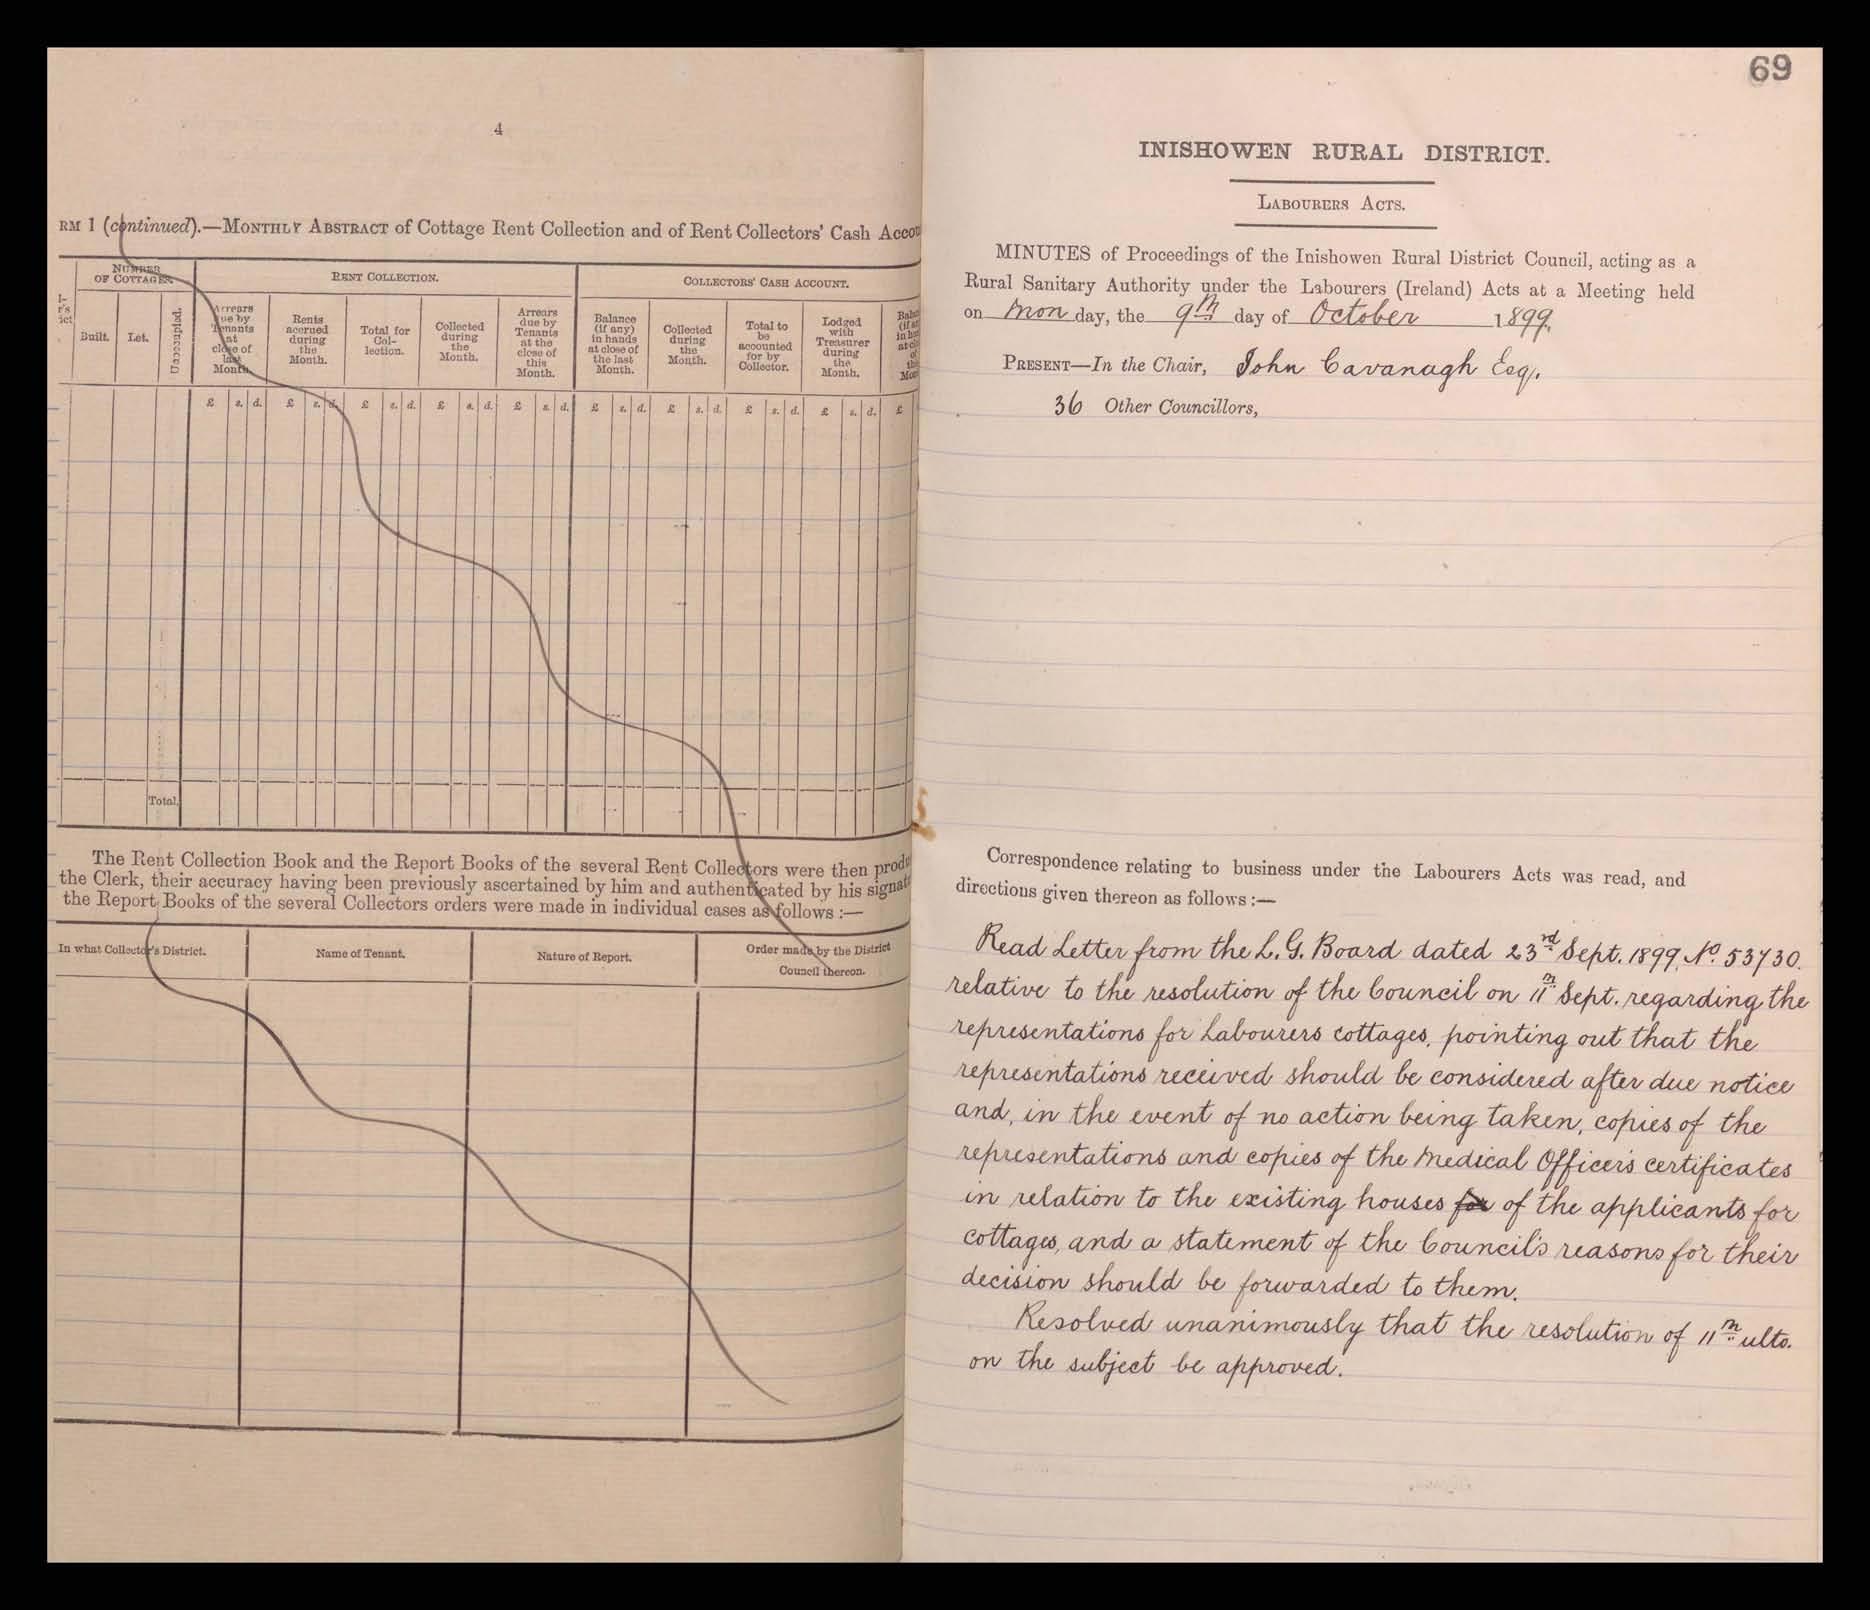 4
RM 1 (continued).—MONTHLY ABSTRACT of Cottage Rent Collection and of Rent Collectors' Cash Accou
NUMBER OF COTTAGES.
RENT COLLECTION.
COLLECTORS' CASH ACCOUNT.
l-
r's
ict
Built.
Let.
Unoccupied.
Arrears due by Tenants at close of last Month.
Rents accrued during the Month.
Total for Col-lection.
Collected during the Month.
Arrears due by Tenants at the close of this Month.
Balance (if any) in hands at close of the last Month.
Collected during the Month.
Total to be accounted for by Collector.
Lodged with Treasurer during the Month.
£ s. d. £ s. d. £ s. d. £ s. d. £ s. d. £ s. d. £ s. d. £ s. d. £ s. d. £
Total.
The Rent Collection Book and the Report Books of the several Rent Collectors were then produ
the Clerk, their accuracy having been previously ascertained by him and authenticated by his signat
the Report Books of the several Collectors orders were made in individual cases as follows :—
In what Collector's District.
Name of Tenant.
Nature of Report.
Order made by the District
Council thereon.
69
INISHOWEN RURAL DISTRICT.
LABOURERS ACTS.
MINUTES of Proceedings of the Inishowen Rural District Council, acting as a
Rural Sanitary Authority under the Labourers (Ireland) Acts at a Meeting held
on Mon day, the 9th day of October 1899.
PRESENT—In the Chair, John Cavanagh Esq.
36 Other Councillors,
Correspondence relating to business under the Labourers Acts was read, and
directions given thereon as follows :—
Read Letter from the L. G. Board dated 23rd Sept. 1899, No. 53730.
relative to the resolution of the Council on 11th Sept. regarding the
representations for Labourers cottages, pointing out that the
representations received should be considered after due notice
and, in the event of no action being taken, copies of the
representations and copies of the Medical Officer's certificates
in relation to the existing houses for of the applicants for
cottages, and a statement of the Council's reasons for their
decision should be forwarded to them.
Resolved unanimously that the resolution of 11th ulto.
on the subject be approved.